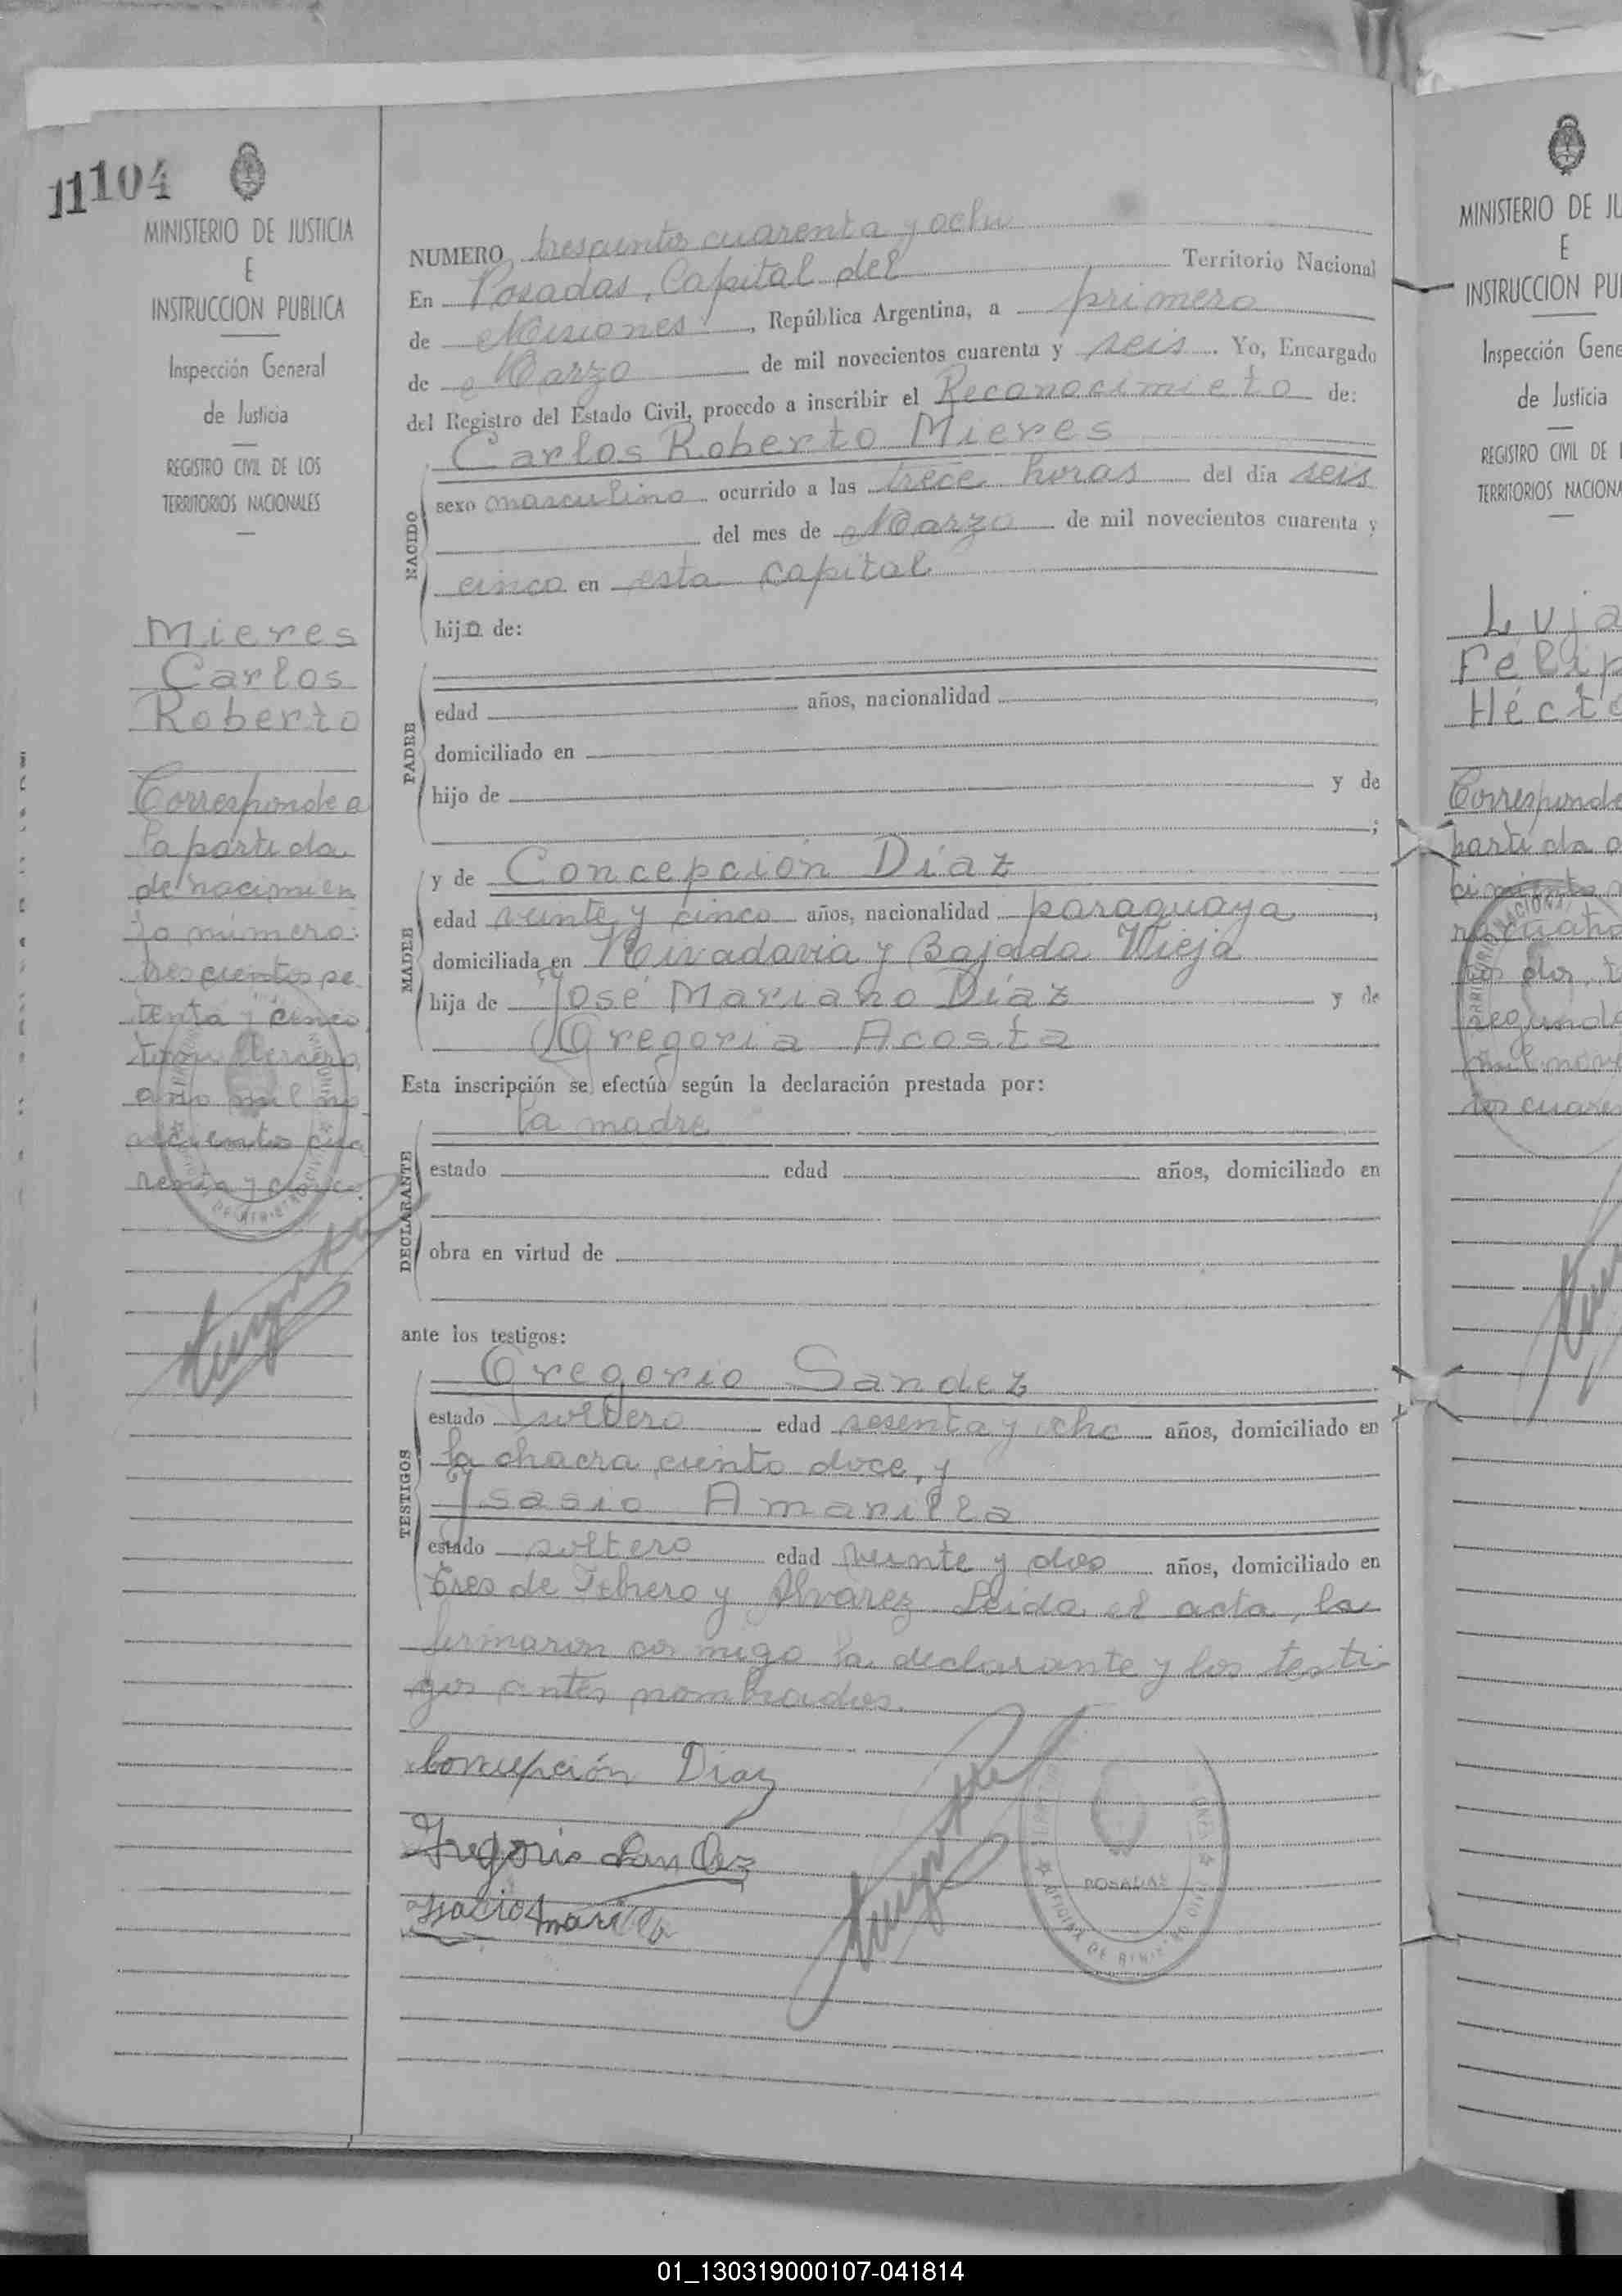 11104
MINISTERIO DE JUSTICIA
E
INSTRUCCION PUBLICA
Inspección General
de Justicia
REGISTRO CIVIL DE LOS
TERRITORIOS NACIONALES
Mieres
Carlos
Roberto
Corresponde a
la partida
de nacimien
to número:
trescientos se
tenta y cinco
tomo tercero
año mil no
vecientos cua
renta y cinco.
NUMERO trescientos cuarenta y ocho
En Posadas, Capital del Territorio Nacional
de Misiones, República Argentina, a primero
de Marzo de mil novecientos cuarenta y seis. Yo, Encargado
del Registro del Estado Civil, procedo a inscribir el Reconocimieto de:
Carlos Roberto Mieres
NACIDO
sexo masculino ocurrido a las trece horas del día seis
del mes de Marzo de mil novecientos cuarenta y
cinco en esta capital
hijo de:
PADRE
edad años, nacionalidad ,
domiciliado en
hijo de y de
;
MADRE
y de Concepción Díaz
edad veinte y cinco años, nacionalidad paraguaya,
domiciliada en Rivadavia y Bajada Vieja
hija de José Mariano Díaz y de
Gregoria Acosta
Esta inscripción se efectúa según la declaración prestada por:
DECLARANTE
la madre
estado edad años, domiciliado en
obra en virtud de
ante los testigos:
TESTIGOS
Gregorio Sandez
estado soltero edad sesenta y ocho años, domiciliado en
la chacra ciento doce, y
Isasio Amarilla
estado soltero edad veinte y dos años, domiciliado en
tres de Febrero y Alvarez. Leida el acta, la
firmaron conmigo la declarante y los testi-
gos antes nombrados.
Concepción Diaz
Gregorio Sandez
Isacio Amarilla
POSADAS
MINISTERIO DE JU
E
INSTRUCCION PU
Inspección Gene
de Justicia
REGISTRO CIVIL DE
TERRITORIOS NACIONA
Luja
Félip
Hécto
Corresponde
partida
segundo
mil nove
tos cuare
01_130319000107-041814